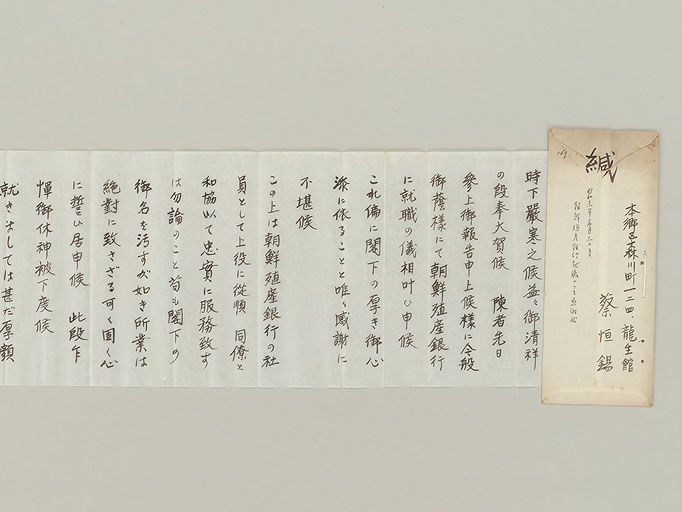 緘
本郷区森川町一二四、龍生館
蔡恒錫
時下嚴寒之候益々御清祥
の段奉大賀候 陳者先日
參上御報告申上候様に今般
御蔭様にて朝鮮殖産銀行
に就職の儀相叶ひ申候
これ偏に閣下の厚き御心
添に依ることと唯々感謝に
不堪候
この上は朝鮮殖産銀行の社
員として上役に從順 同僚と
和協以て忠實に服務致す
は勿論のこと苟も閣下の
御名を汚すが如き所業は
絶對に致さざる可く固く心
に誓ひ居申候 此段乍
憚御休神被下度候
就きましては甚だ厚顔